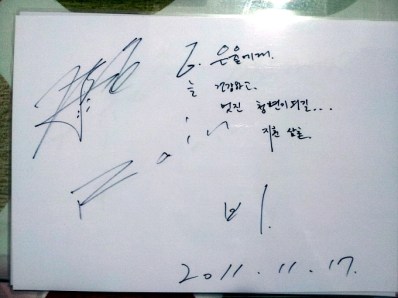 To. 은율에게.
늘 건강하고.
멋진 청년이 되길...
Rain
비.
2011.11.17.